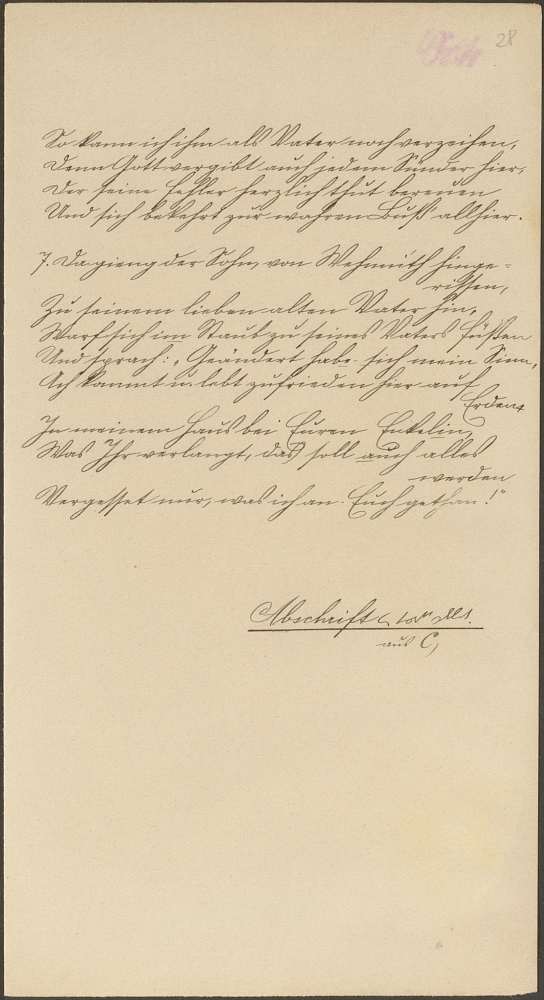 28
So kann ich ihm als Vater noch verzeihen,
Denn Gott vergibt auch jedem Sünder hier,
Der seine Fehler herzlich thut bereuen
Und sich bekehrt zur wahren Buß' allhier.
7. Da gieng der Sohn, von Wehmuth hinge-
rissen,
Zu seinem lieben alten Vater hin,
Warf sich im Staub zu seines Vaters Füßen
Und sprach: „Geändert habe sich mein Sinn,
Ach kommt u. lebt zufrieden hier auf
Erden,
In meinem Haus bei Euren Enkelin,
Was Ihr verlangt, das soll auch alles
werden
Vergesset nur, was ich an Euch gethan!"
Abschrift
aus C,